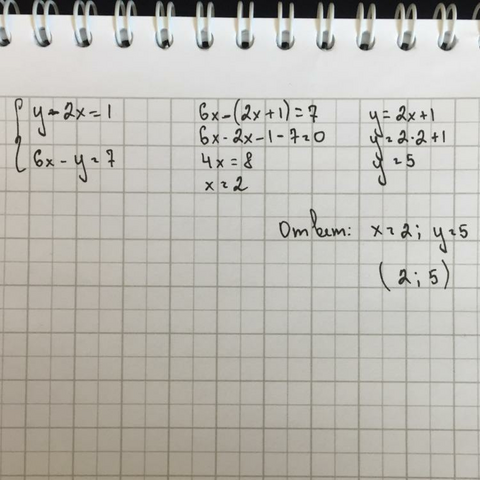 y - 2x = 1
6x - y = 7
6x - (2x + 1) = 7
6x - 2x - 1 - 7 = 0
4x = 8
x = 2
y = 2x + 1
y = 2 · 2 + 1
y = 5
Ответ: x = 2; y = 5
(2; 5)